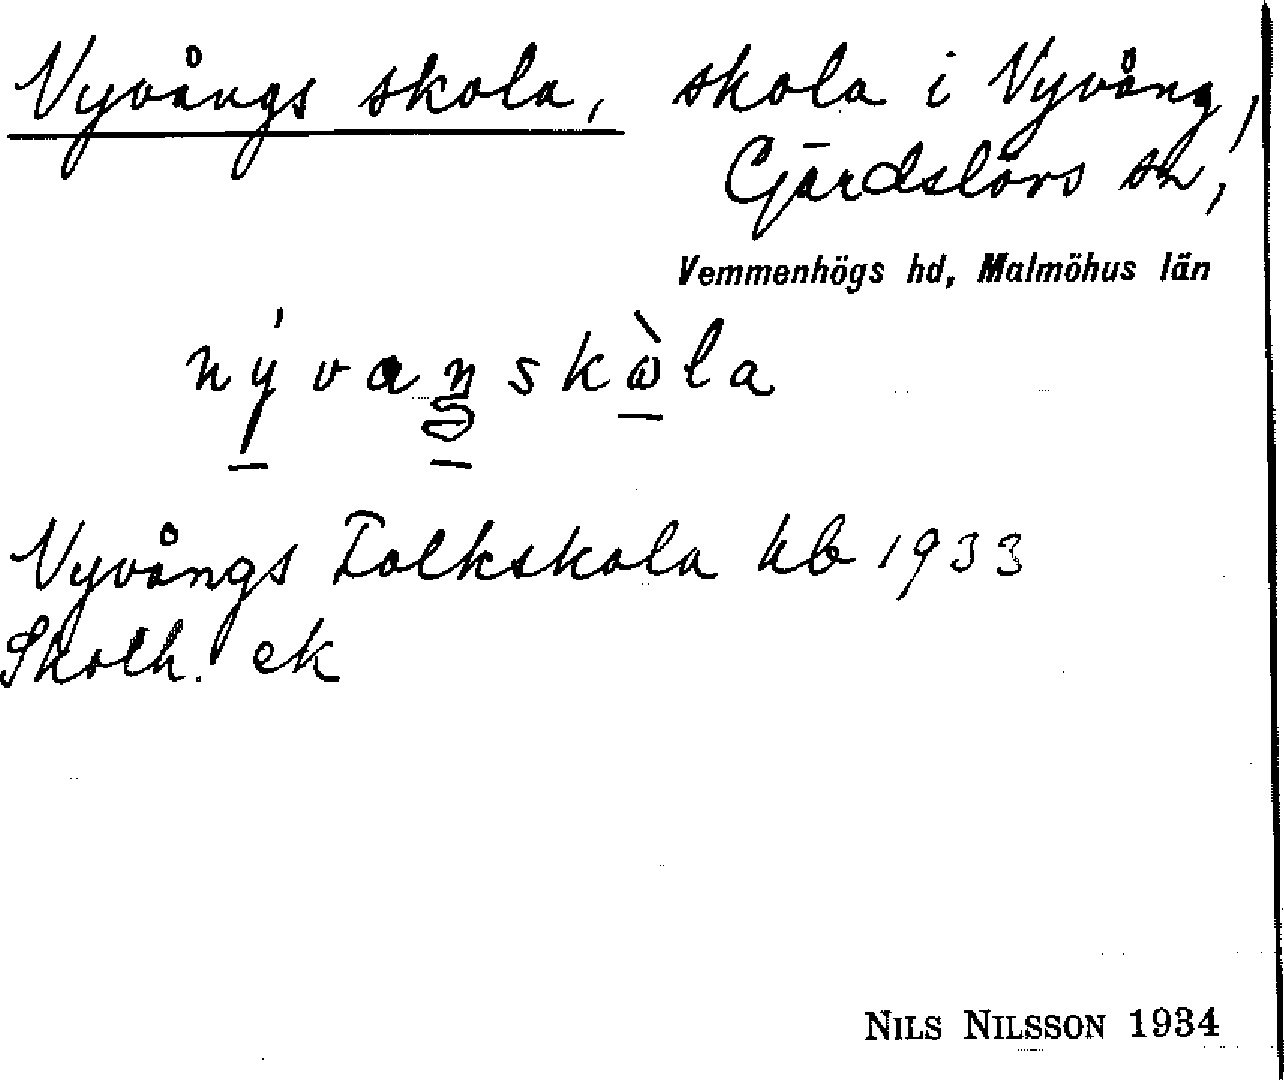 Nyvångs skola, skola i Nyvång,
Gärdslövs sn,
Vemmenhögs hd, Malmöhus län
nývaŋskὼla
Nyvångs Folkskola kb 1933
Skolh. ek
NILS NILSSON 1934